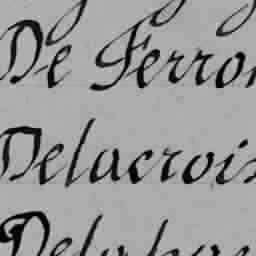 De Ferron
Delacroix